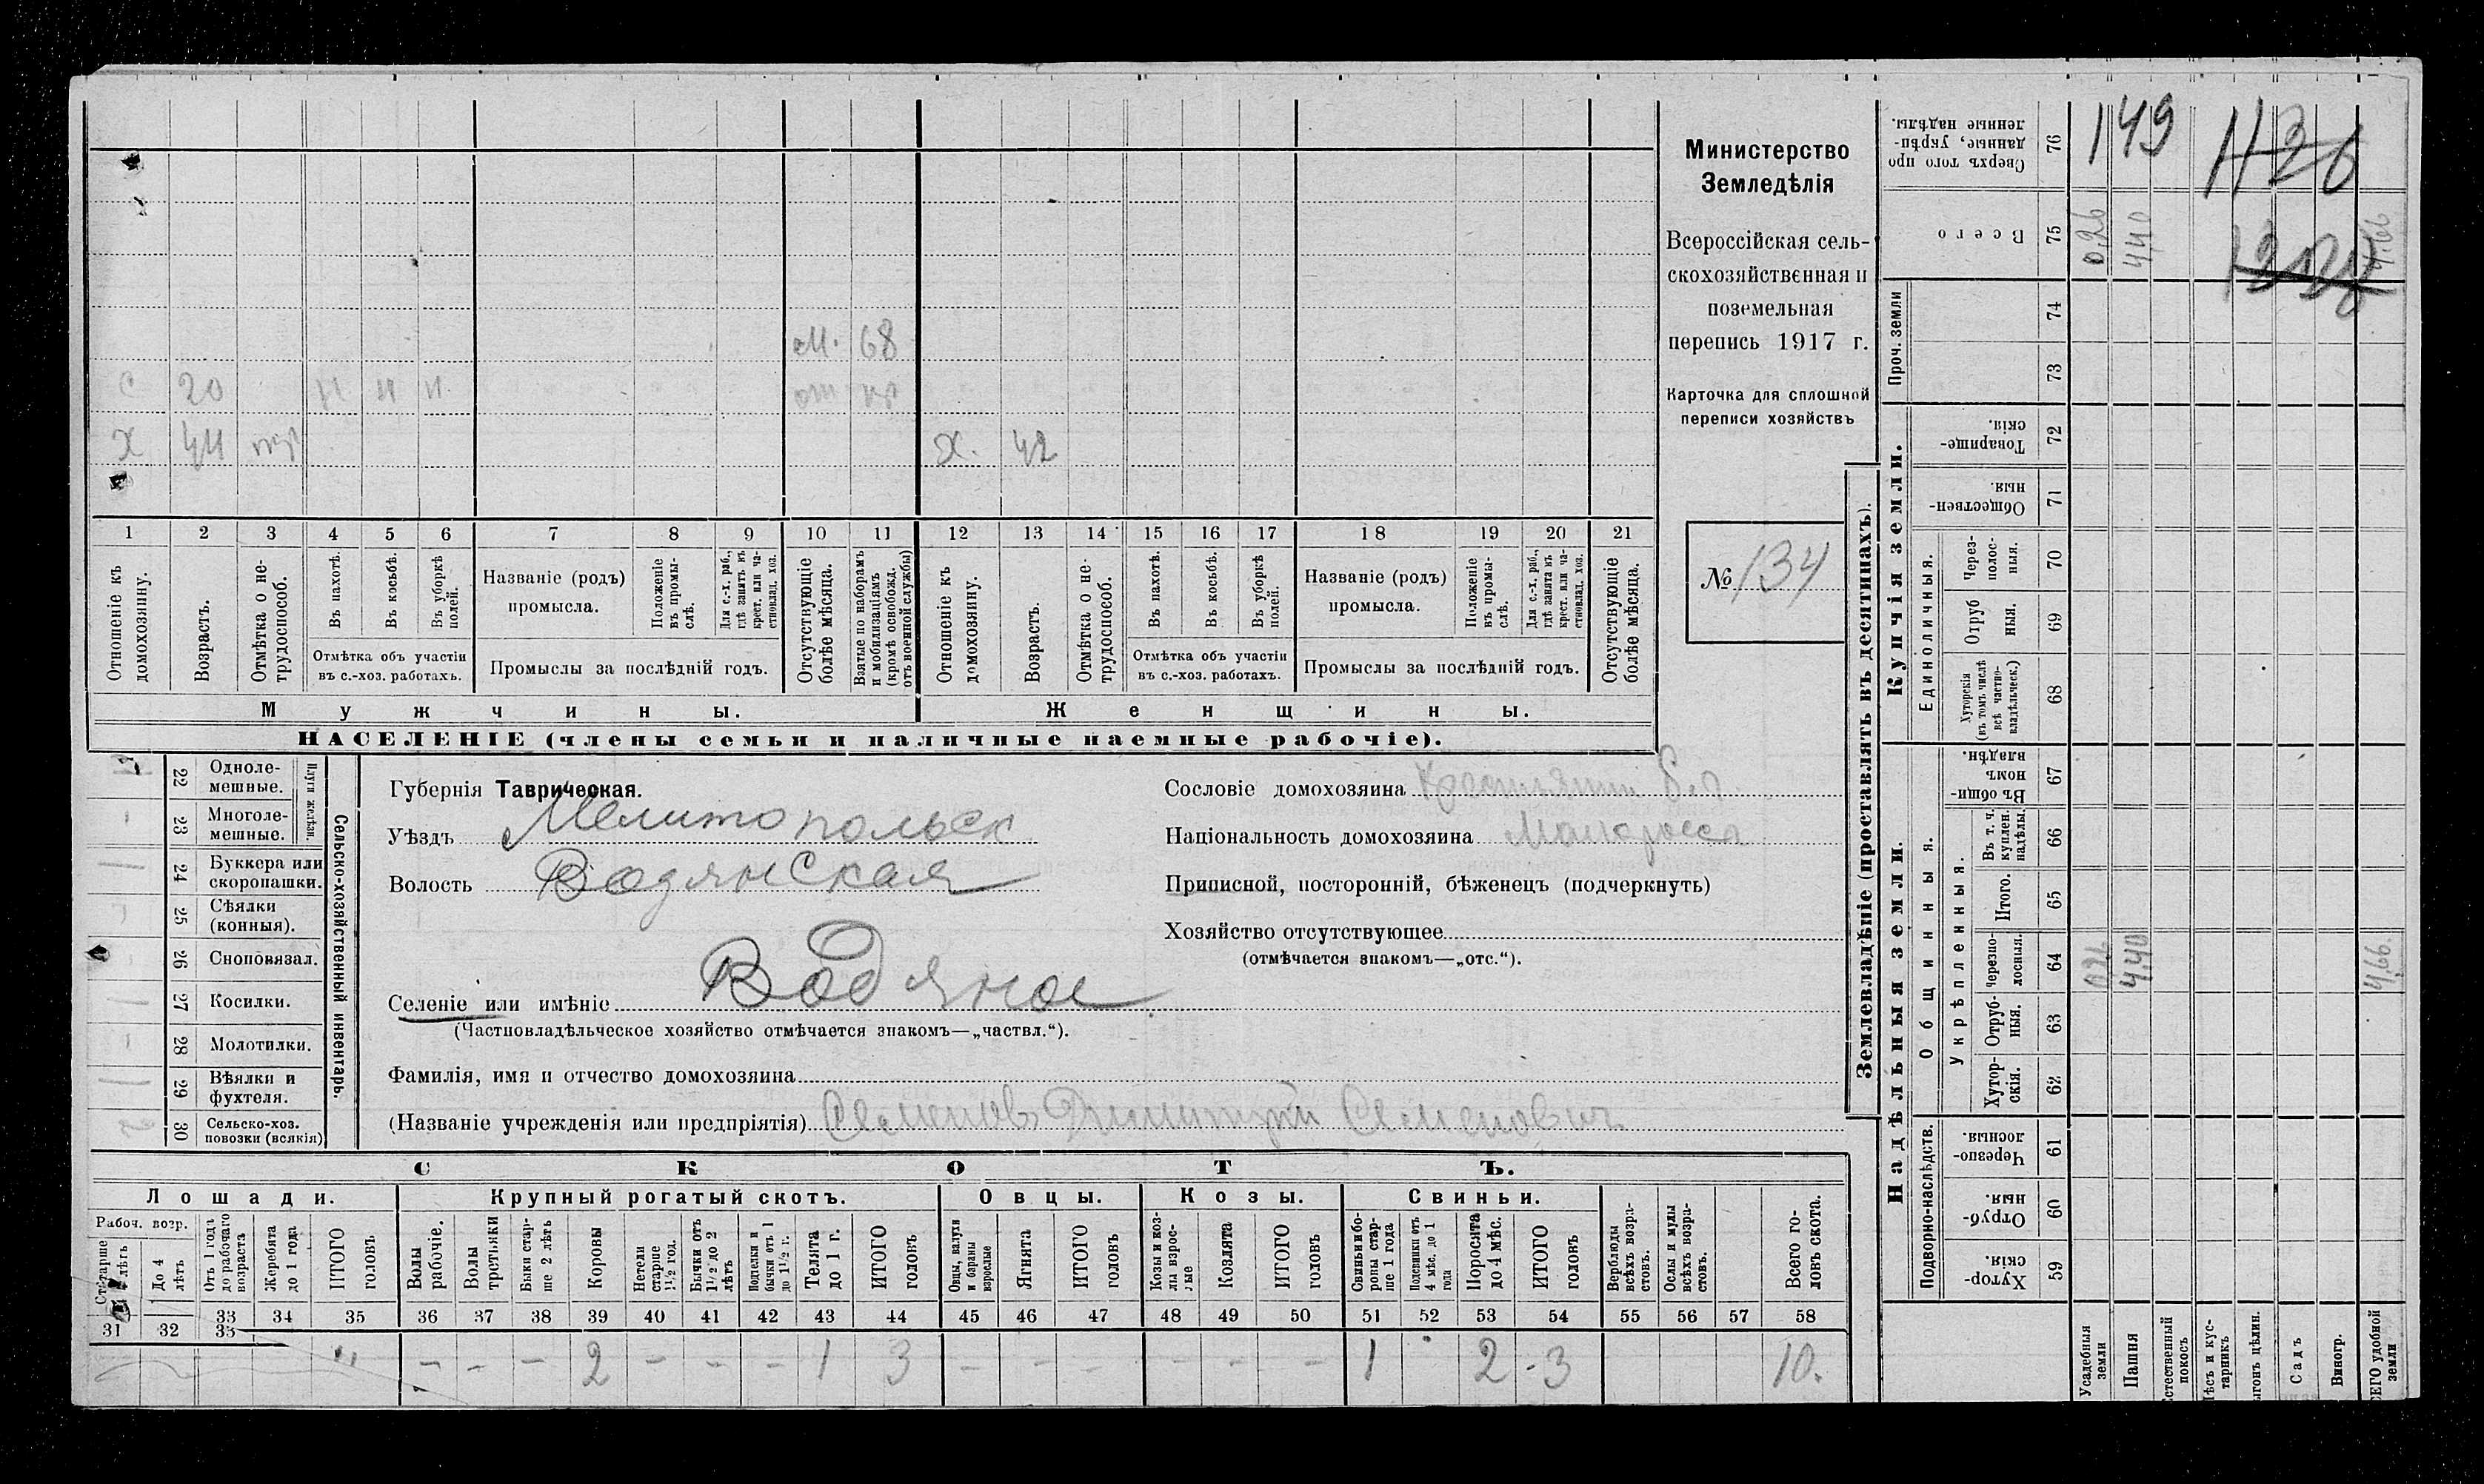 м. 68
с 20 н н н
х 44 х. 42
1 2 3 4 5 6 7 8 9 10 11 12 13 14 15 16 17 18 19 20 21
Отношеніе къ домохозяину.
Возрастъ.
Отмѣтка о не-
трудоспособ.
Въ пахотѣ.
Въ косьбѣ.
Въ уборкѣ
полей.
Отмѣтка объ участіи
въ с.-хоз. работахъ.
Названіе (родъ)
промысла.
Положеніе
въ промы-
слѣ.
Для с.-х. раб.,
гдѣ занятъ въ
крест. или ча-
стновлад. хоз.
Промыслы за послѣдній годъ.
Отсутствующіе
болѣе мѣсяца.
Взятые по наборамъ
и мобилизаціямъ
(кромѣ освобожд.
отъ военной службы)
Отношеніе къ
домохозяину.
Возрастъ.
Отмѣтка о не-
трудоспособ.
Въ пахотѣ.
Въ косьбѣ.
Въ уборкѣ
полей.
Отмѣтка объ участіи
въ с.-хоз. работахъ.
Названіе (родъ)
промысла.
Положеніе
въ промы-
слѣ.
Для с.-х. раб.,
гдѣ занята въ
крест. или ча-
стновлад. хоз.
Промыслы за послѣдній годъ.
Отсутствующіе
болѣе мѣсяца.
Мужчины.
Женщины.
НАСЕЛЕНІЕ (члены семьи и наличные наемные рабочіе).
Министерство
Земледѣлія
Всероссійская сель-
скохозяйственная и
поземельная
перепись 1917 г.
Карточка для сплошной
переписи хозяйствъ
№ 134
Сельско-хозяйственный инвентарь.
Плуги желѣзн.
22 Одноле-
мешные.
23 Многоле-
мешные.
24 Буккера или
скоропашки.
25 Сѣялки
(конныя).
26 Сноповязал.
27 Косилки.
28 Молотилки.
29 Вѣялки и
фухтеля.
30 Сельско-хоз.
повозки (всякія)
Губернія Таврическая.
Уѣздъ Мелитопольск
Волость Водянская
Селеніе или имѣніе Водяное
(Частновладѣльческое хозяйство отмѣчается знакомъ—„частвл.“).
Фамилія, имя и отчество домохозяина
(Названіе учрежденія или предпріятія) Семенов Димитрій Семенович
Сословіе домохозяина
Національность домохозяина Малоросса
Приписной, посторонній, бѣженецъ (подчеркнуть)
Хозяйство отсутствующее
(отмѣчается знакомъ—„отс.“).
СКОТЪ.
Лошади. Крупный рогатый скотъ. Овцы. Козы. Свиньи.
Рабоч. возр.
Старше
4 лѣтъ
До 4
лѣтъ
Отъ 1 года
до рабочаго
возраста
Жеребята
до 1 года
ИТОГО
головъ
Волы
рабочіе.
Волы
третьяки
Быки стар-
ше 2 лѣтъ
Коровы
Нетели
старше
1½ год.
Бычки отъ
1½ до 2
лѣтъ
Подтелки и
бычки отъ 1
до 1½ г.
Телята
до 1 г.
ИТОГО
головъ
Овцы, валухи
и бараны
взрослые
Ягнята
ИТОГО
головъ
Козы и коз-
лы взрос-
лые
Козлята
ИТОГО
головъ
Свиньи бо-
ровы стар-
ше 1 года
Подсвинки отъ
4 мѣс. до 1
года
Поросята
до 4 мѣс.
ИТОГО
головъ
Верблюды
всѣхъ возра-
стовъ.
Ослы и мулы
всѣхъ возра-
стовъ.
Всего го-
ловъ скота.
31 32 33 34 35 36 37 38 39 40 41 42 43 44 45 46 47 48 49 50 51 52 53 54 55 56 57 58
33
– – – 2 – – – 1 3 – – – – – – 1 2 3 10.
Землевладѣніе (проставлять въ десятинахъ).
Купчія земли.
Надѣльныя земли.
Сверхъ того про
данные, укрѣп-
ленные надѣлы. 76
149 1126
Всего 75
0.26 4.40 4.66
Проч. земли
74
73
Товарище-
скія. 72
Обществен-
ныя. 71
Единоличныя.
Через-
полос-
ныя. 70
Отруб
ныя. 69
Хуторскія
(въ томъ числѣ
всѣ частно-
владѣльческ.) 68
Общинныя.
Въ общи-
номъ
владѣн. 67
Укрѣпленныя.
Въ т. ч.
куплен.
надѣлы. 66
Итого. 65
Черезпо-
лосныя. 64
0.26 4.40 4.66.
Отруб-
ныя. 63
Хутор-
скія. 62
Подворно-наслѣдств.
Черезпо-
лосныя. 61
Отруб-
ныя. 60
Хутор-
скія. 59
Усадебныя
земли
Пашня
стественный
покосъ
ѣсъ и кус-
тарникъ
ыгонъ цѣлин.
Садъ
Виногр.
СЕГО удобной
земли